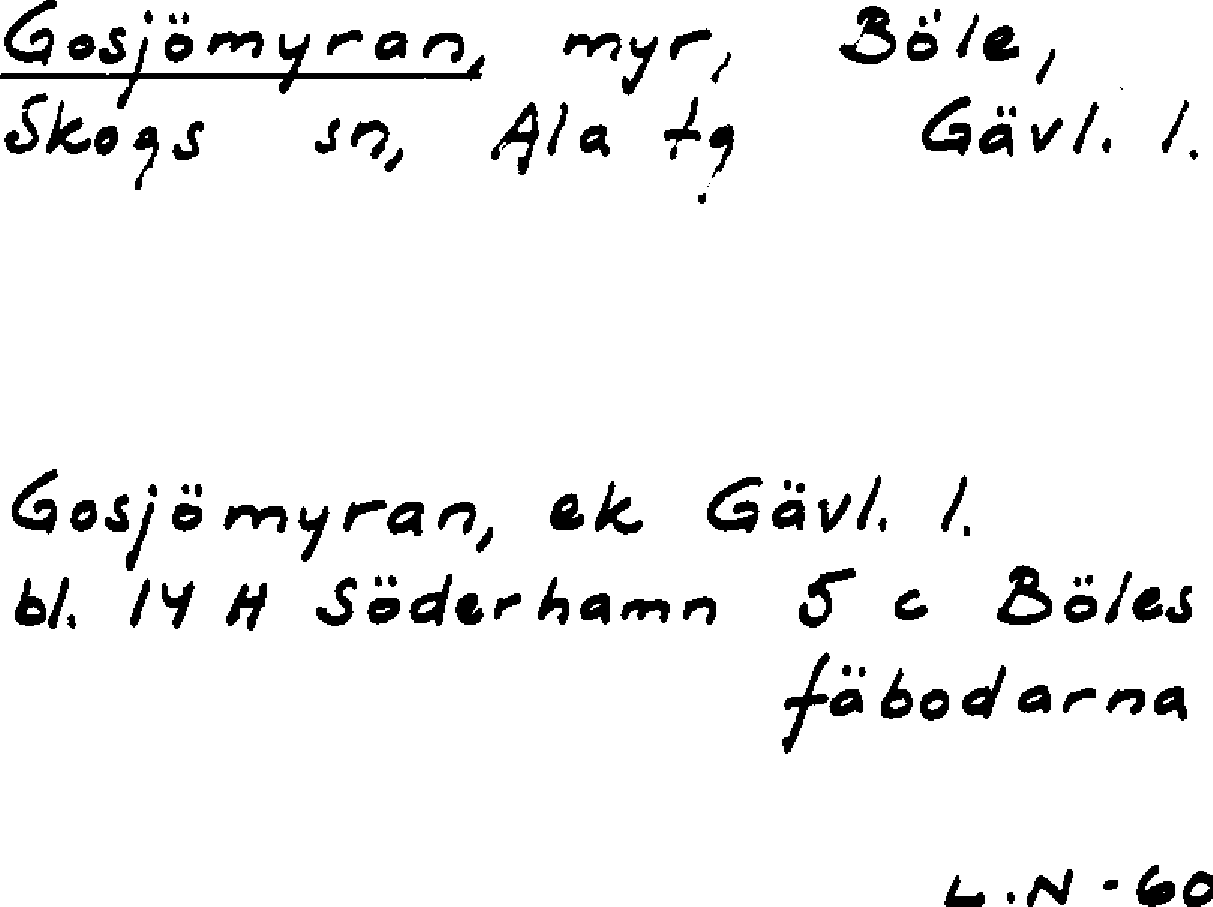 Gosjömyran, myr, Böle,
Skogs sn, Ala tg Gävl. l.
Gosjömyran, ek Gävl. l.
bl. 14 H Söderhamn 5 c Böles
fäbodarna
L.N-60